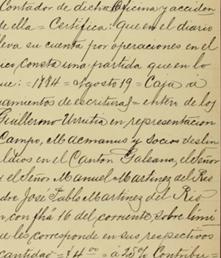 Contador de dicha Oficina y acciden
de ella = Certifico: que en el diario
lleva su cuenta por operaciones en el
co, consta una partida que en lo
que: = 1884 = agosto 19 = Caja á
amientos de escrituras = entero de los
Guillermo Urrutia en representacion
Campo, MacManus y Socios deslin
ldios en el Canton Galeana, el Señor
i el Señor Manuel Martinez del Rio
dro José Pablo Martinez del Rio
n, con fha 16 del corriente, sobre
de les corresponde en sus respectivos
cantidad = $4.00 = á 25% Contribu